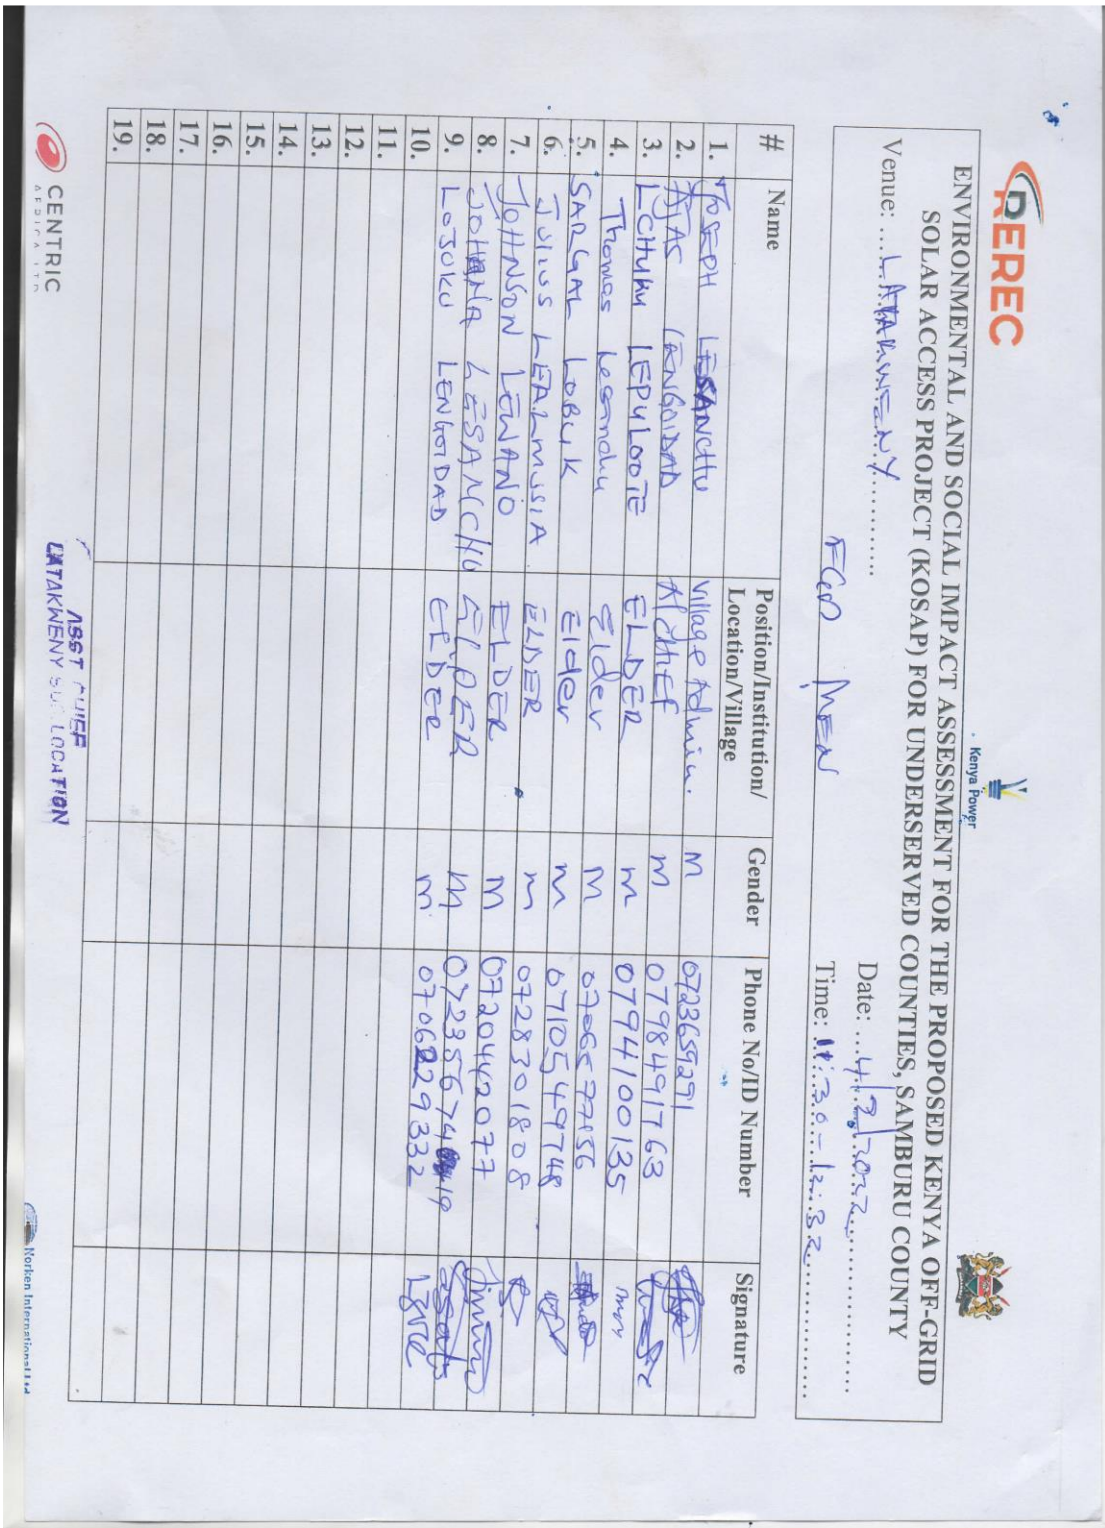 REREC
Kenya Power
ENVIRONMENTAL AND SOCIAL IMPACT ASSESSMENT FOR THE PROPOSED KENYA OFF-GRID
SOLAR ACCESS PROJECT (KOSAP) FOR UNDERSERVED COUNTIES, SAMBURU COUNTY
Venue: ...LATAKWENY........... Date: ...4/2/2022...
FGD MEN Time: 11:30 - 12:32
# Name Position/Institution/Location/Village Gender Phone No/ID Number Signature
1. JOSEPH LESANCHU Village Admin. M 0723659291
2. AJAS LENGOIDAD A/CHIEF M 0798491763
3. LCHUKU LEPULOOTE ELDER M 0794100135
4. Thomas Lesanchu Elder M 0706577156
5. SARGAL LOBUK Elder M 0710549748
6. JULIUS LEALMUSIA ELDER M 0728301808
7. JOHNSON LEWANO ELDER M 0720442077
8. JOHANA LESANCHU ELDER M
9. LOJUKU LENGOIDAD ELDER M
10.
11.
12.
13.
14.
15.
16.
17.
18.
19.
ASST CHIEF
LATAKWENY SUB LOCATION
CENTRIC
AFRICA LTD
Norken International Ltd